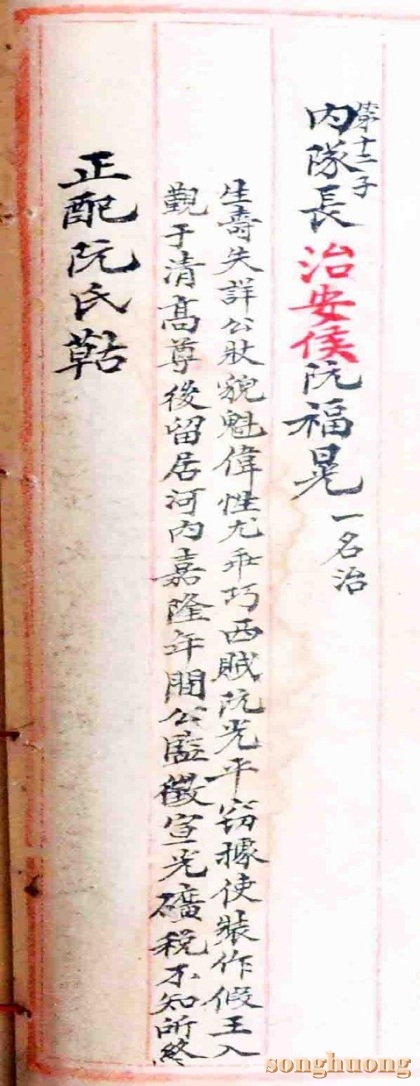 第十二子
內隊長治安侯阮福晃一名治
生壽失詳公狀貌魁偉性尤乖巧西賊阮光平窃據使裝作假王入
覲于清高尊後留居河內嘉隆年間公監徵宣光礦稅不知所終
正配阮氏䩞
songhuong